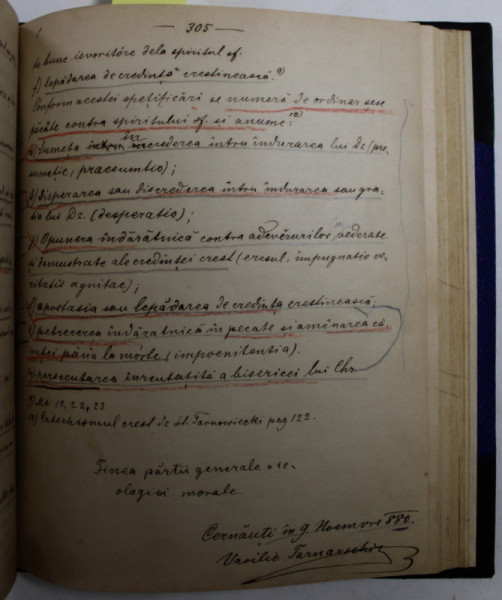 — 305 —
te bune isvoritóre dela spiritul sf.
f) lepădarea de credinţă crestinească. a)
Conform acestei spetificări se numeră de ordinar sese
păcate contra spiritului sf. si anume:
Sumeţa încrederea întru îndurarea lui Dz (pre-
praesumtio);
b) Disperarea sau discrederea întru îndurarea sau gra-
tia lui Dz. (desperatio);
Opunerea îndărătnică contra adevĕrurilor vederate
si demustrate ale credinţei crest (eresul, impugnatio ve-
ritatis agnitae);
apostasia sau lepădarea de credinţa crestinească,
petrecerea îndăratnică în pecate si amânarea că-
inţei până la mórte (impoenitentia).
persecutarea a bisericei lui Chr.
Mt. 10, 22, 23
a) Catechismul crest de pag 122.
Finea părtii generale a te-
ologiei morale.
Cernăuti în 9 Noemvre 880.
Vasilie Tarnavschi